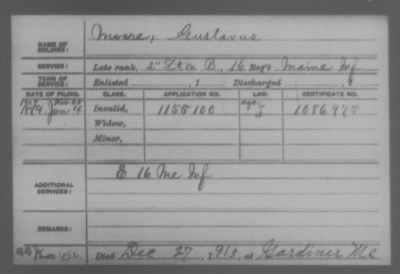 Moore, Gustavus
NAME OF SOLDIER:
SERVICE: Late rank, 2" Lt Co. B, 16 Reg't Maine Inf
TERM OF SERVICE: Enlisted , 1 Discharged , 1
DATE OF FILING. CLASS. APPLICATION NO. LAW. CERTIFICATE NO.
Jan 4 Invalid, 1158100 age
Widow,
Minor,
ADDITIONAL SERVICES: E 16 Me Inf
REMARKS:
Died Dec 27, 191 , at Gardiner Me